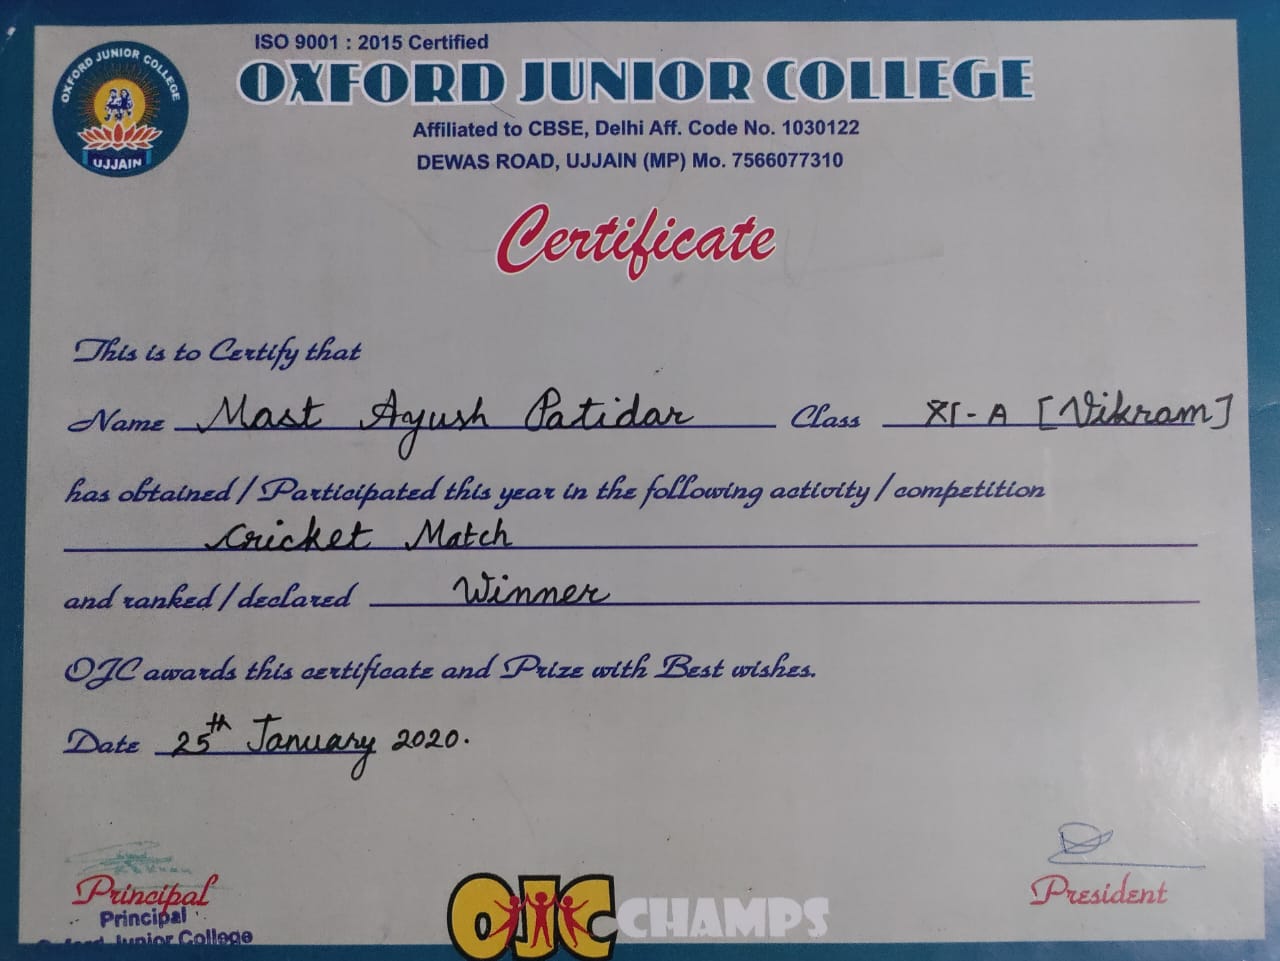 ISO 9001 : 2015 Certified
OXFORD JUNIOR COLLEGE
Affiliated to CBSE, Delhi Aff. Code No. 1030122
DEWAS ROAD, UJJAIN (MP) Mo. 7566077310
OXFORD JUNIOR COLLEGE
UJJAIN
Certificate
This is to Certify that
Name Mast Ayush Patidar Class XI-A [Vikram]
has obtained / Participated this year in the following activity / competition
Cricket Match
and ranked / declared Winner
OJC awards this certificate and Prize with Best wishes.
Date 25th January 2020.
Principal
Principal
Oxford Junior College
OJC CHAMPS
President